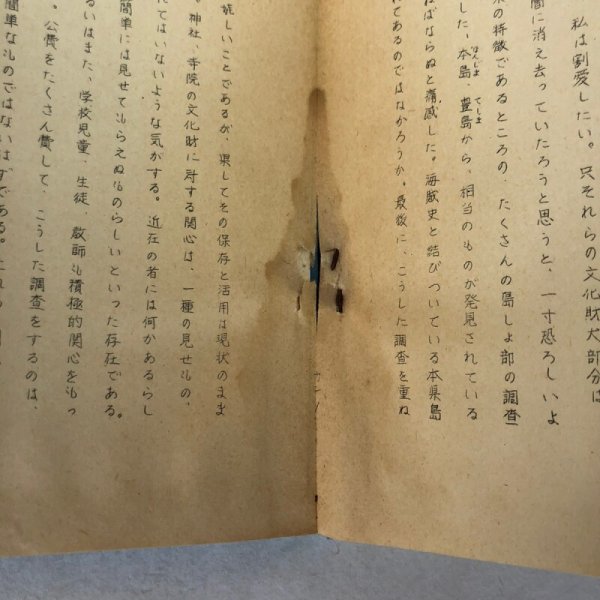 私は割愛したい。只それらの文化財大部分は
闇に消え去っていたろうと思うと、一寸恐ろしいよ
の特徴であるところの、たくさんの島しょ部の調査
した。本島、豊島から、相当のものが発見されている
ほんじま てしま
ねばならぬと痛感した。海賊史と結びついている本県島
てあるのではなかろうか。最後に、こうした調査を重ね
嬉しいことであるが、果してその保存と活用は現状のまま
。神社、寺院の文化財に対する関心は、一種の見せもの、
てはいないような気がする。近在の者には何かあるらし
簡単には見せてもらえぬものらしいといった存在である。
るいはまた、学校児童、生徒、教師も積極的関心をもっ
。公費をたくさん費して、こうした調査をするのは、
簡単なものではないはずである。